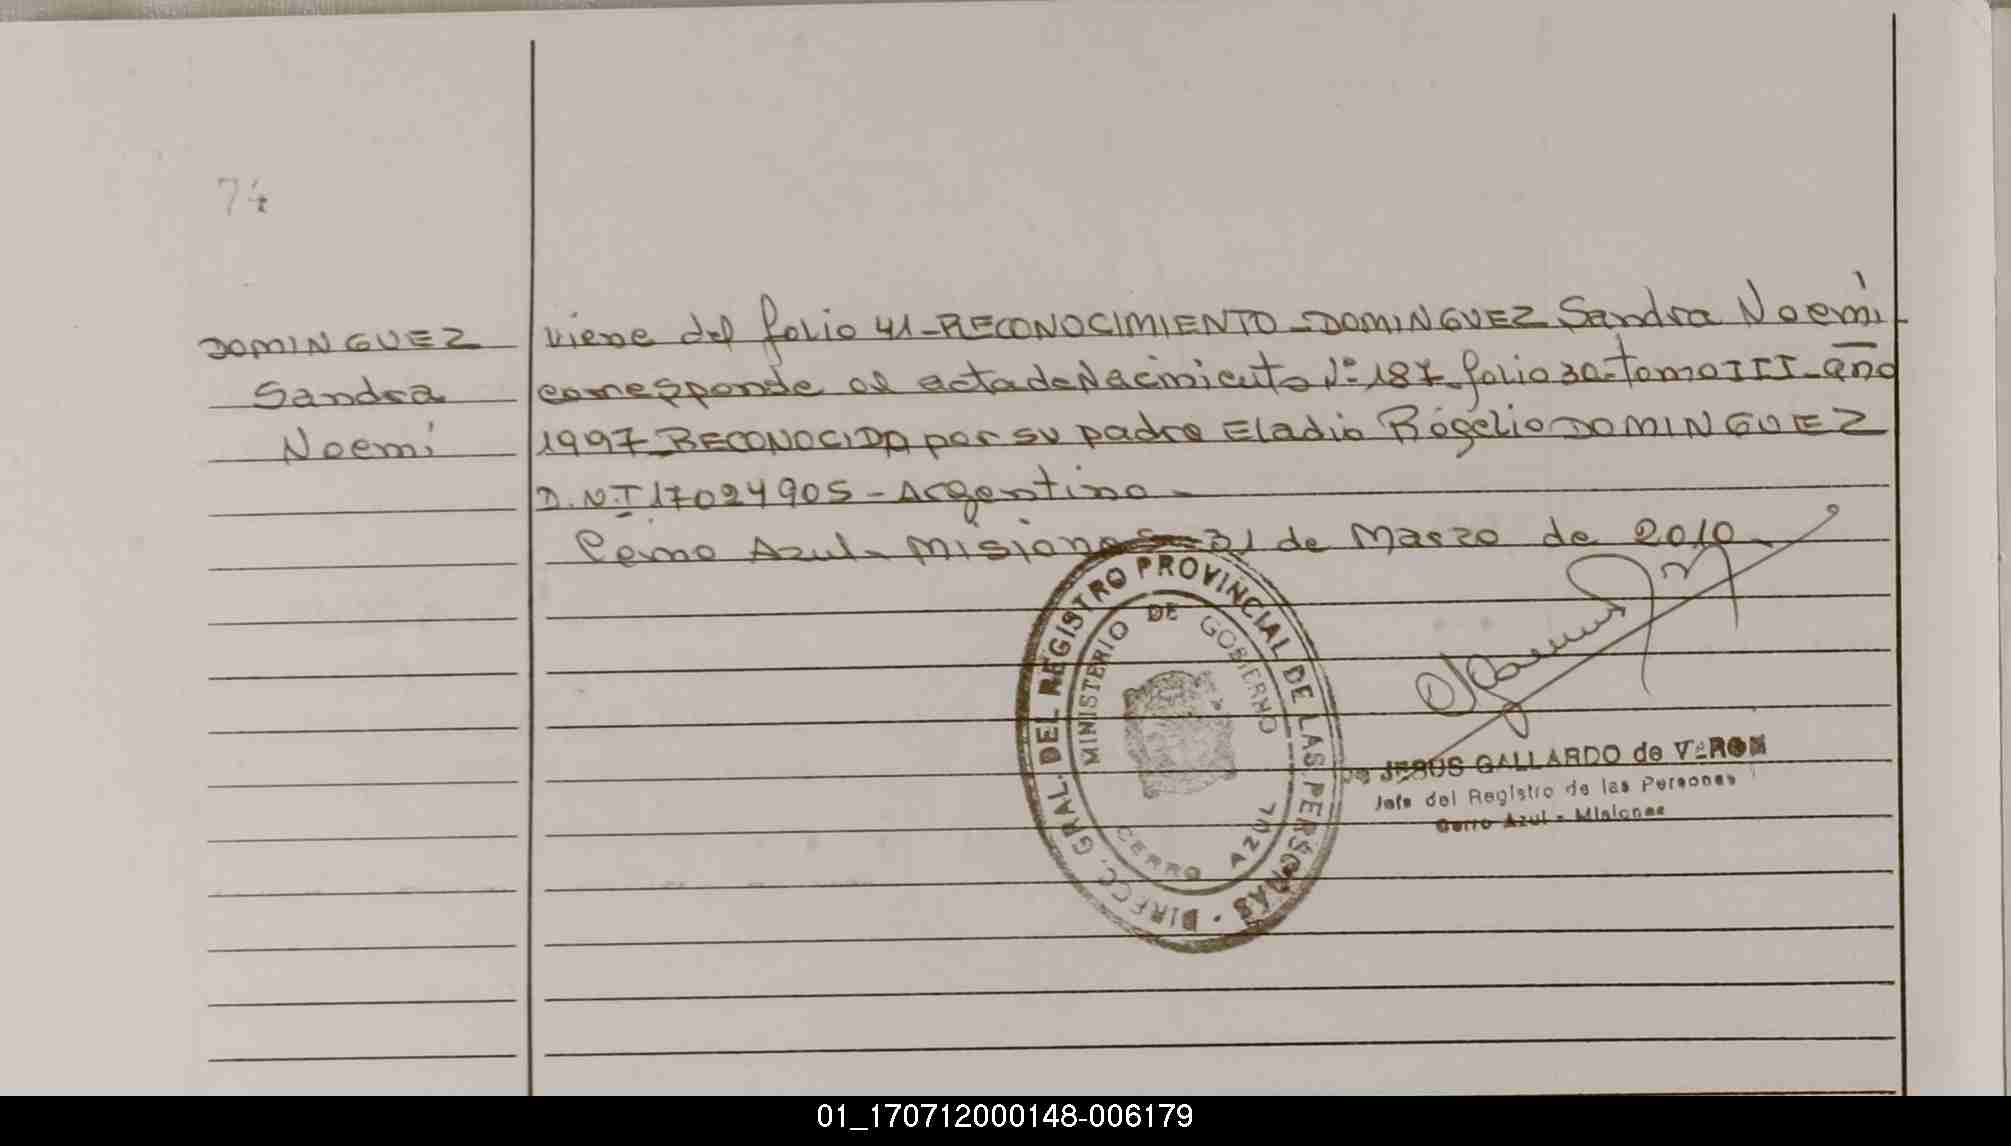 74
DOMINGUEZ
Sandra
Noemí
viene del folio 41-RECONOCIMIENTO-DOMINGUEZ Sandra Noemí
corresponde al acta de Nacimiento Nº 187 folio 30-tomo III-año
1997-RECONOCIDA por su padre Eladio Rogelio DOMINGUEZ
D.N.I 17024905-Argentino-
Cerro Azul-Misiones-31 de Marzo de 2010-
DIRECC. GRAL. DEL REGISTRO PROVINCIAL DE LAS PERSONAS
MINISTERIO DE GOBIERNO
CERRO AZUL
JESUS GALLARDO de VERON
Jefe del Registro de las Personas
Cerro Azul - Misiones
01_170712000148-006179